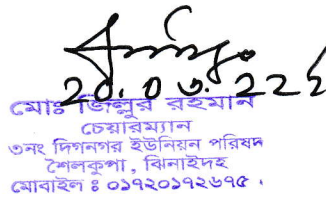 ২০.০৩.২২
মোঃ জিল্লুর রহমান
চেয়ারম্যান
৩নং দিগনগর ইউনিয়ন পরিষদ
শৈলকুপা, ঝিনাইদহ
মোবাইল ঃ ০১৭২০১৭২৬৭৫ .